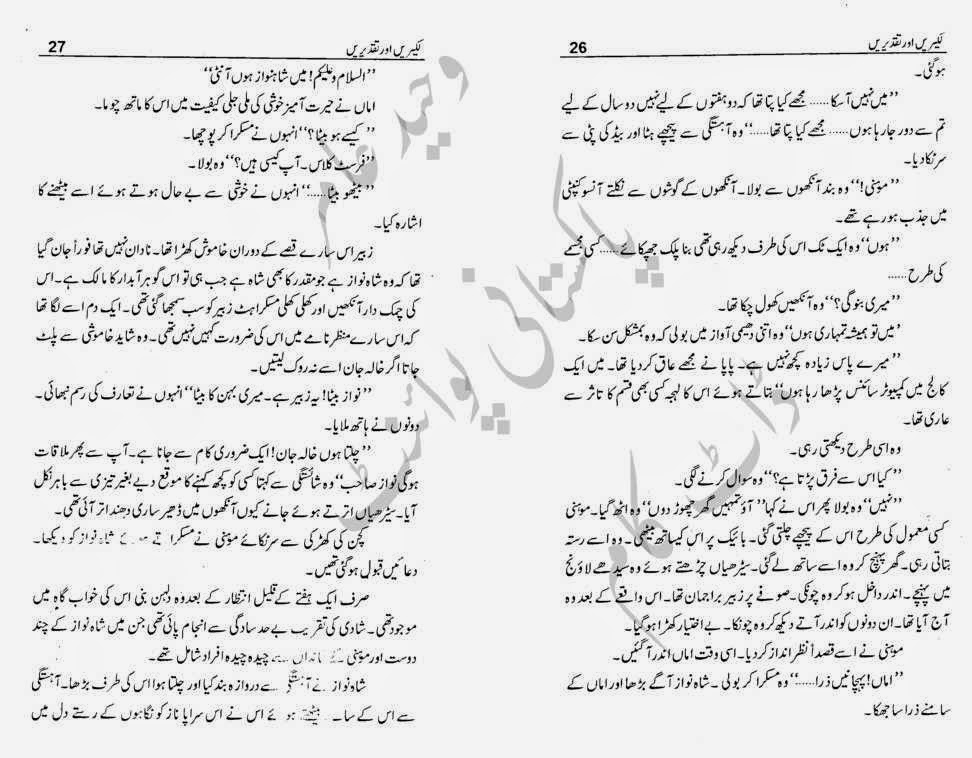 لکیریں اور تقدیریں 26
ہوگئی۔
’’میں نہیں آ سکا...... مجھے کیا پتا تھا کہ دو ہفتوں کے لیے نہیں دو سال کے لیے
تم سے دور جا رہا ہوں...... مجھے کیا پتا تھا.....‘‘ وہ آہستگی سے پیچھے ہٹا اور بیڈ کی پٹی سے
سر ٹکا دیا۔
’’مونی!‘‘ وہ بند آنکھوں سے بولا۔ آنکھوں کے گوشوں سے نکلتے آنسو کنپٹی
میں جذب ہو رہے تھے۔
’’ہوں‘‘ وہ ایک ٹک اس کی طرف دیکھ رہی تھی بنا پلک جھپکائے ......کسی مجسمے
کی طرح ......
’’میری بنو گی؟‘‘ وہ آنکھیں کھول چکا تھا۔
’میں تو ہمیشہ تمہاری ہوں‘‘ وہ اتنی دھیمی آواز میں بولی کہ وہ بمشکل سن سکا۔
’’میرے پاس زیادہ کچھ نہیں ہے۔ پاپا نے مجھے عاق کر دیا تھا۔ میں ایک
کالج میں کمپیوٹر سائنس پڑھا رہا ہوں‘‘ بتاتے ہوئے اس کا لہجہ کسی بھی قسم کا تاثر سے
عاری تھا۔
وہ اسی طرح دیکھتی رہی۔
’’کیا اس سے فرق پڑتا ہے؟‘‘ وہ سوال کرنے لگی۔
’’نہیں‘‘ وہ بولا پھر اس نے کہا’’ آؤ تمہیں گھر چھوڑ دوں‘‘ وہ اٹھ گیا۔ مونی
کسی معمول کی طرح اس کے پیچھے چلتی گئی۔ بائیک پر اس کیساتھ بیٹھی۔ وہ اسے رستہ
بتاتی رہی۔ گھر پہنچ کر وہ اسے ساتھ لے گئی۔ سیڑھیاں چڑھتے ہوئے وہ سیدھے لاؤنج
میں پہنچے۔ اندر داخل ہو کر وہ چونکی۔ صوفے پر زبیر براجمان تھا۔ اس واقعے کے بعد وہ
آج آیا تھا۔ ان دونوں کو اندر آتے دیکھ کر وہ چونکا۔ بے اختیار کھڑا ہو گیا۔
مونی نے اسے قصداً نظر انداز کر دیا۔ اسی وقت اماں اندر آ گئیں۔
’’اماں! پہچانیں ذرا.....‘‘ وہ مسکرا کر بولی۔ شاہ نواز آگے بڑھا اور اماں کے
سامنے ذرا سا جھکا۔
لکیریں اور تقدیریں 27
’’السلام و علیکم! میں شاہنواز ہوں آنٹی‘‘
اماں نے حیرت آمیز خوشی کی ملی جلی کیفیت میں اس کا ماتھ چوما۔
’’کیسے ہو بیٹا؟‘‘ انہوں نے مسکرا کر پوچھا۔
’’فرسٹ کلاس۔ آپ کیسی ہیں؟‘‘ وہ بولا۔
’’بیٹھو بیٹا.....‘‘ انہوں نے خوشی سے بے حال ہوتے ہوئے اسے بیٹھنے کا
اشارہ کیا۔
زبیر اس سارے قصے کے دوران خاموش کھڑا تھا۔ نادان نہیں تھا فوراً جان گیا
تھا کہ وہ شاہ نواز ہے جو مقدر کا بھی شاہ ہے جب ہی تو اس گوہر آبدار کا مالک ہے۔ اس
کی چمک دار آنکھیں اور کھلی کھلی مسکراہٹ زبیر کو سب سمجھا گئی تھی۔ ایک دم اسے لگا تھا
کہ اس سارے منظر نامے میں اس کی ضرورت کہیں نہیں تھی۔ وہ شاید خاموشی سے پلٹ
جاتا اگر خالہ جان اسے نہ روک لیتیں۔
’’نواز بیٹا! یہ زبیر ہے۔ میری بہن کا بیٹا‘‘ انہوں نے تعارف کی رسم نبھائی۔
دونوں نے ہاتھ ملایا۔
’’چلتا ہوں خالہ جان! ایک ضروری کام سے جانا ہے۔ آپ سے پھر ملاقات
ہوگی نواز صاحب‘‘ وہ شائستگی سے کہتا کسی کو کچھ کہنے کا موقع دیے بغیر تیزی سے باہر نکل
آیا۔ سیڑھیاں اترتے ہوئے جانے کیوں آنکھوں میں ڈھیر ساری دھند اتر آئی تھی۔
کچن کی کھڑکی سے سر ٹکائے مونی نے مسکراتے ہوئے شاہ نواز کو دیکھا۔
دعائیں قبول ہو گئی تھیں۔
صرف ایک ہفتے کے قلیل انتظار کے بعد وہ دلہن بنی اس کی خواب گاہ میں
موجود تھی۔ شادی کی تقریب بے حد سادگی سے انجام پائی تھی جن میں شاہ نواز کے چند
دوست اور مونی کے خاندان سے چیدہ چیدہ افراد شامل تھے۔
شاہ نواز نے آہستگی سے دروازہ بند کیا اور چلتا ہوا اس کی طرف بڑھا۔ آہستگی
سے اس کے سا۔ بیٹھتے ہوئے اس نے اس سراپا ناز کو نگاہوں کے رستے دل میں
وحید عامر
پاکستانی پوائنٹ
ڈاٹ کام